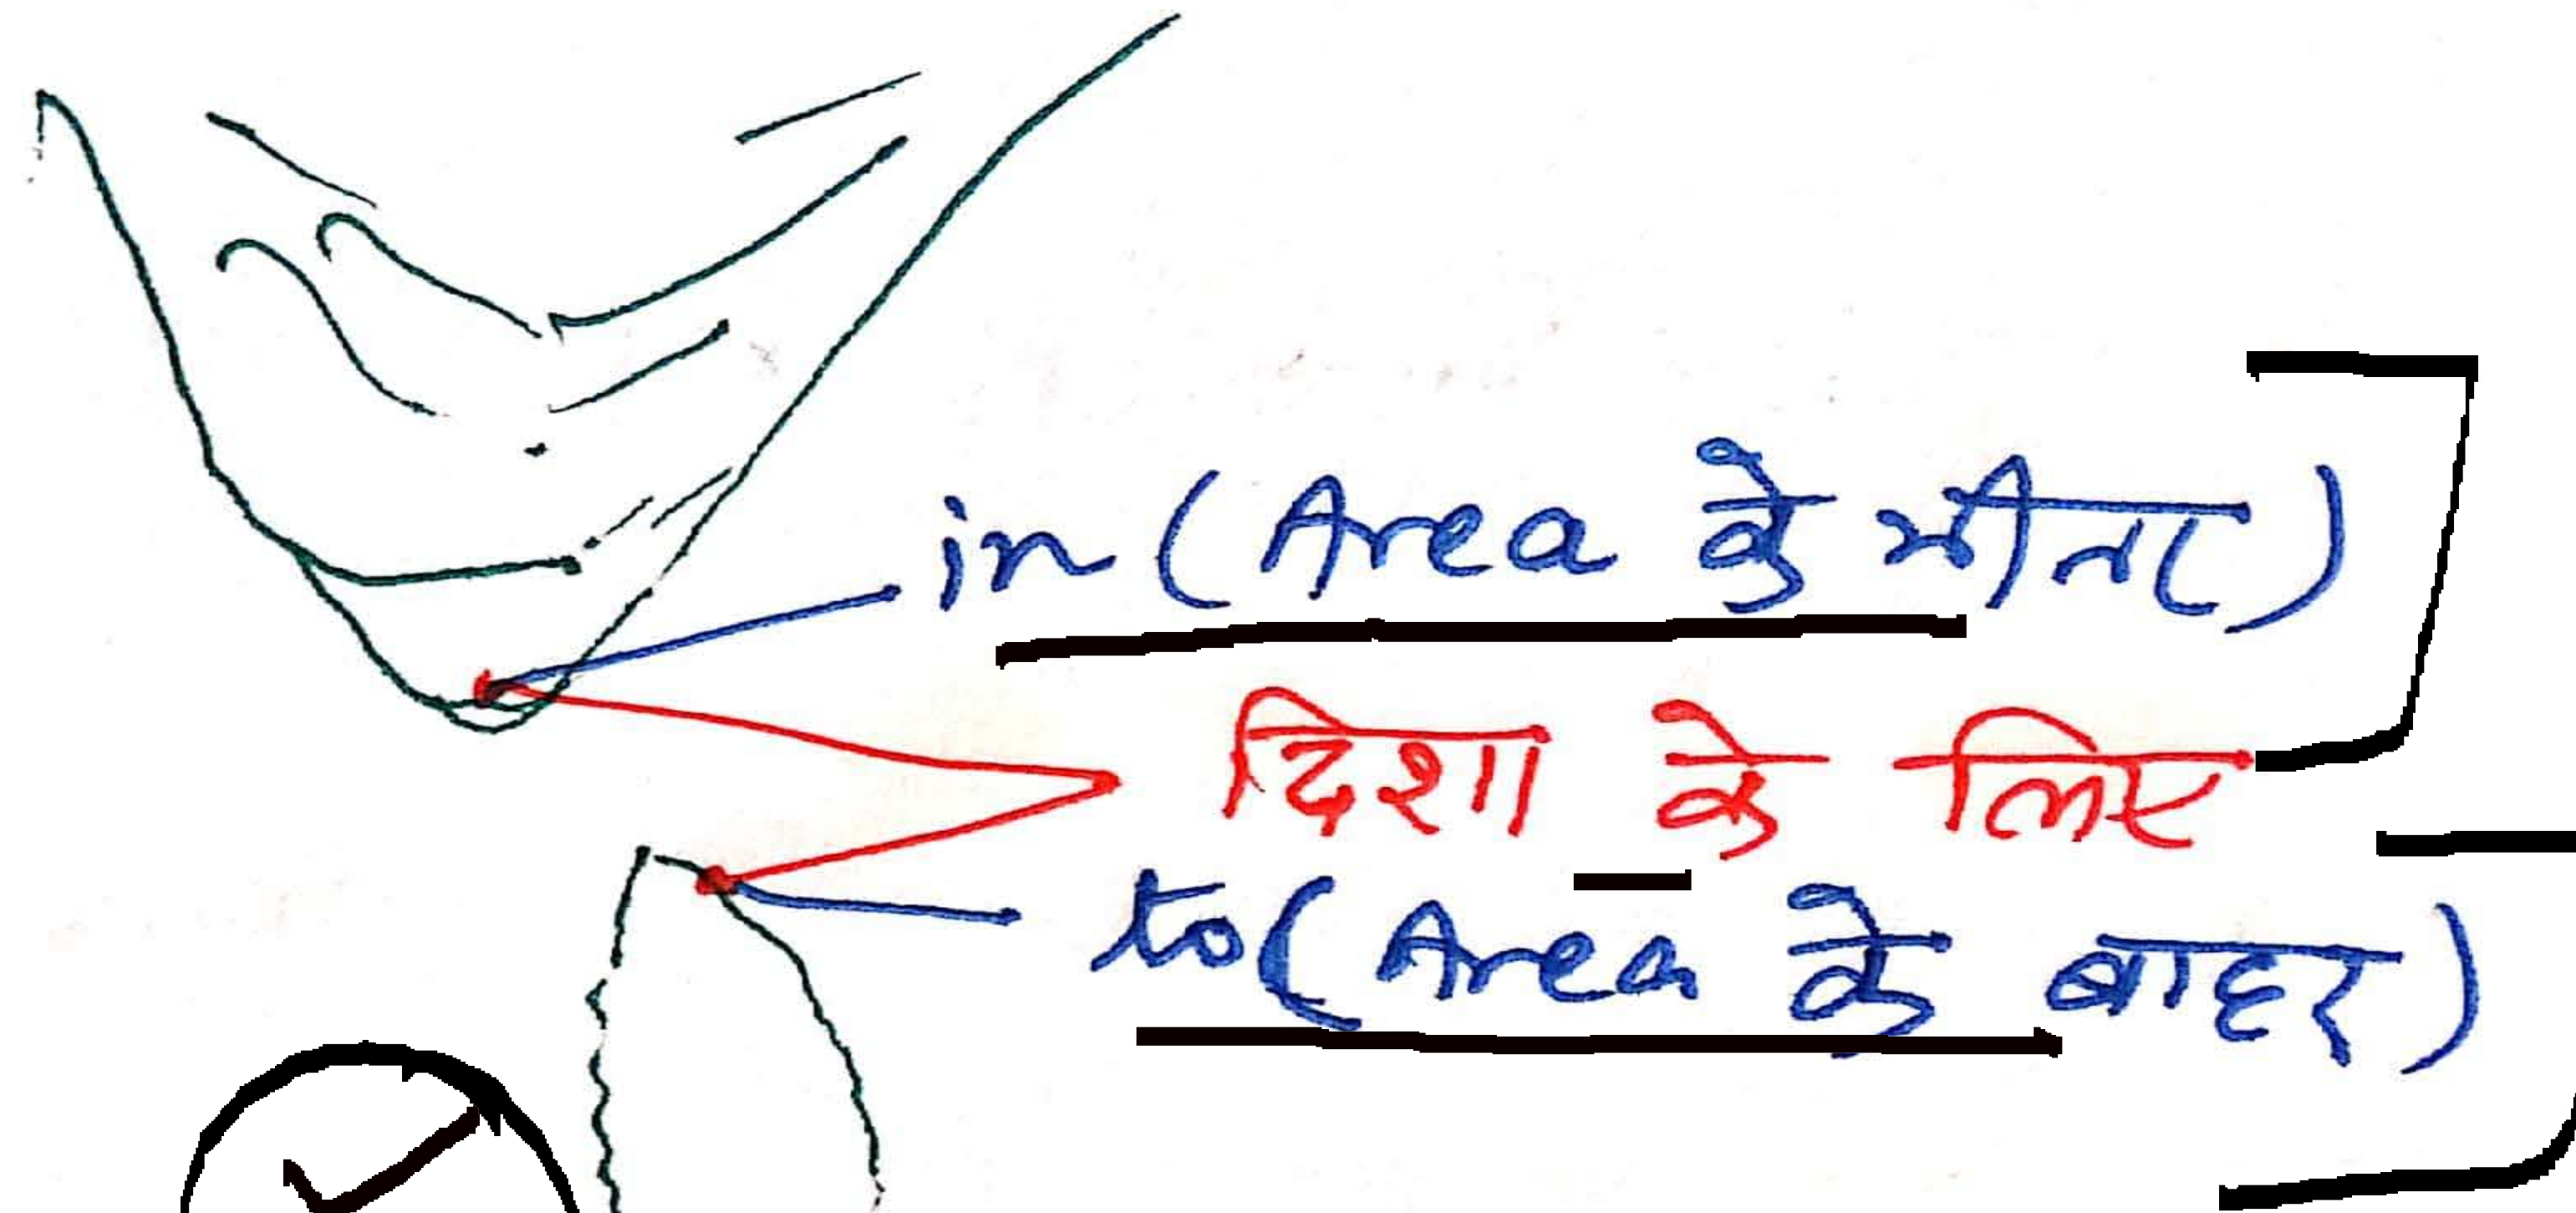 in (Area के भीतर)
दिशा के लिए
to (Area के बाहर)